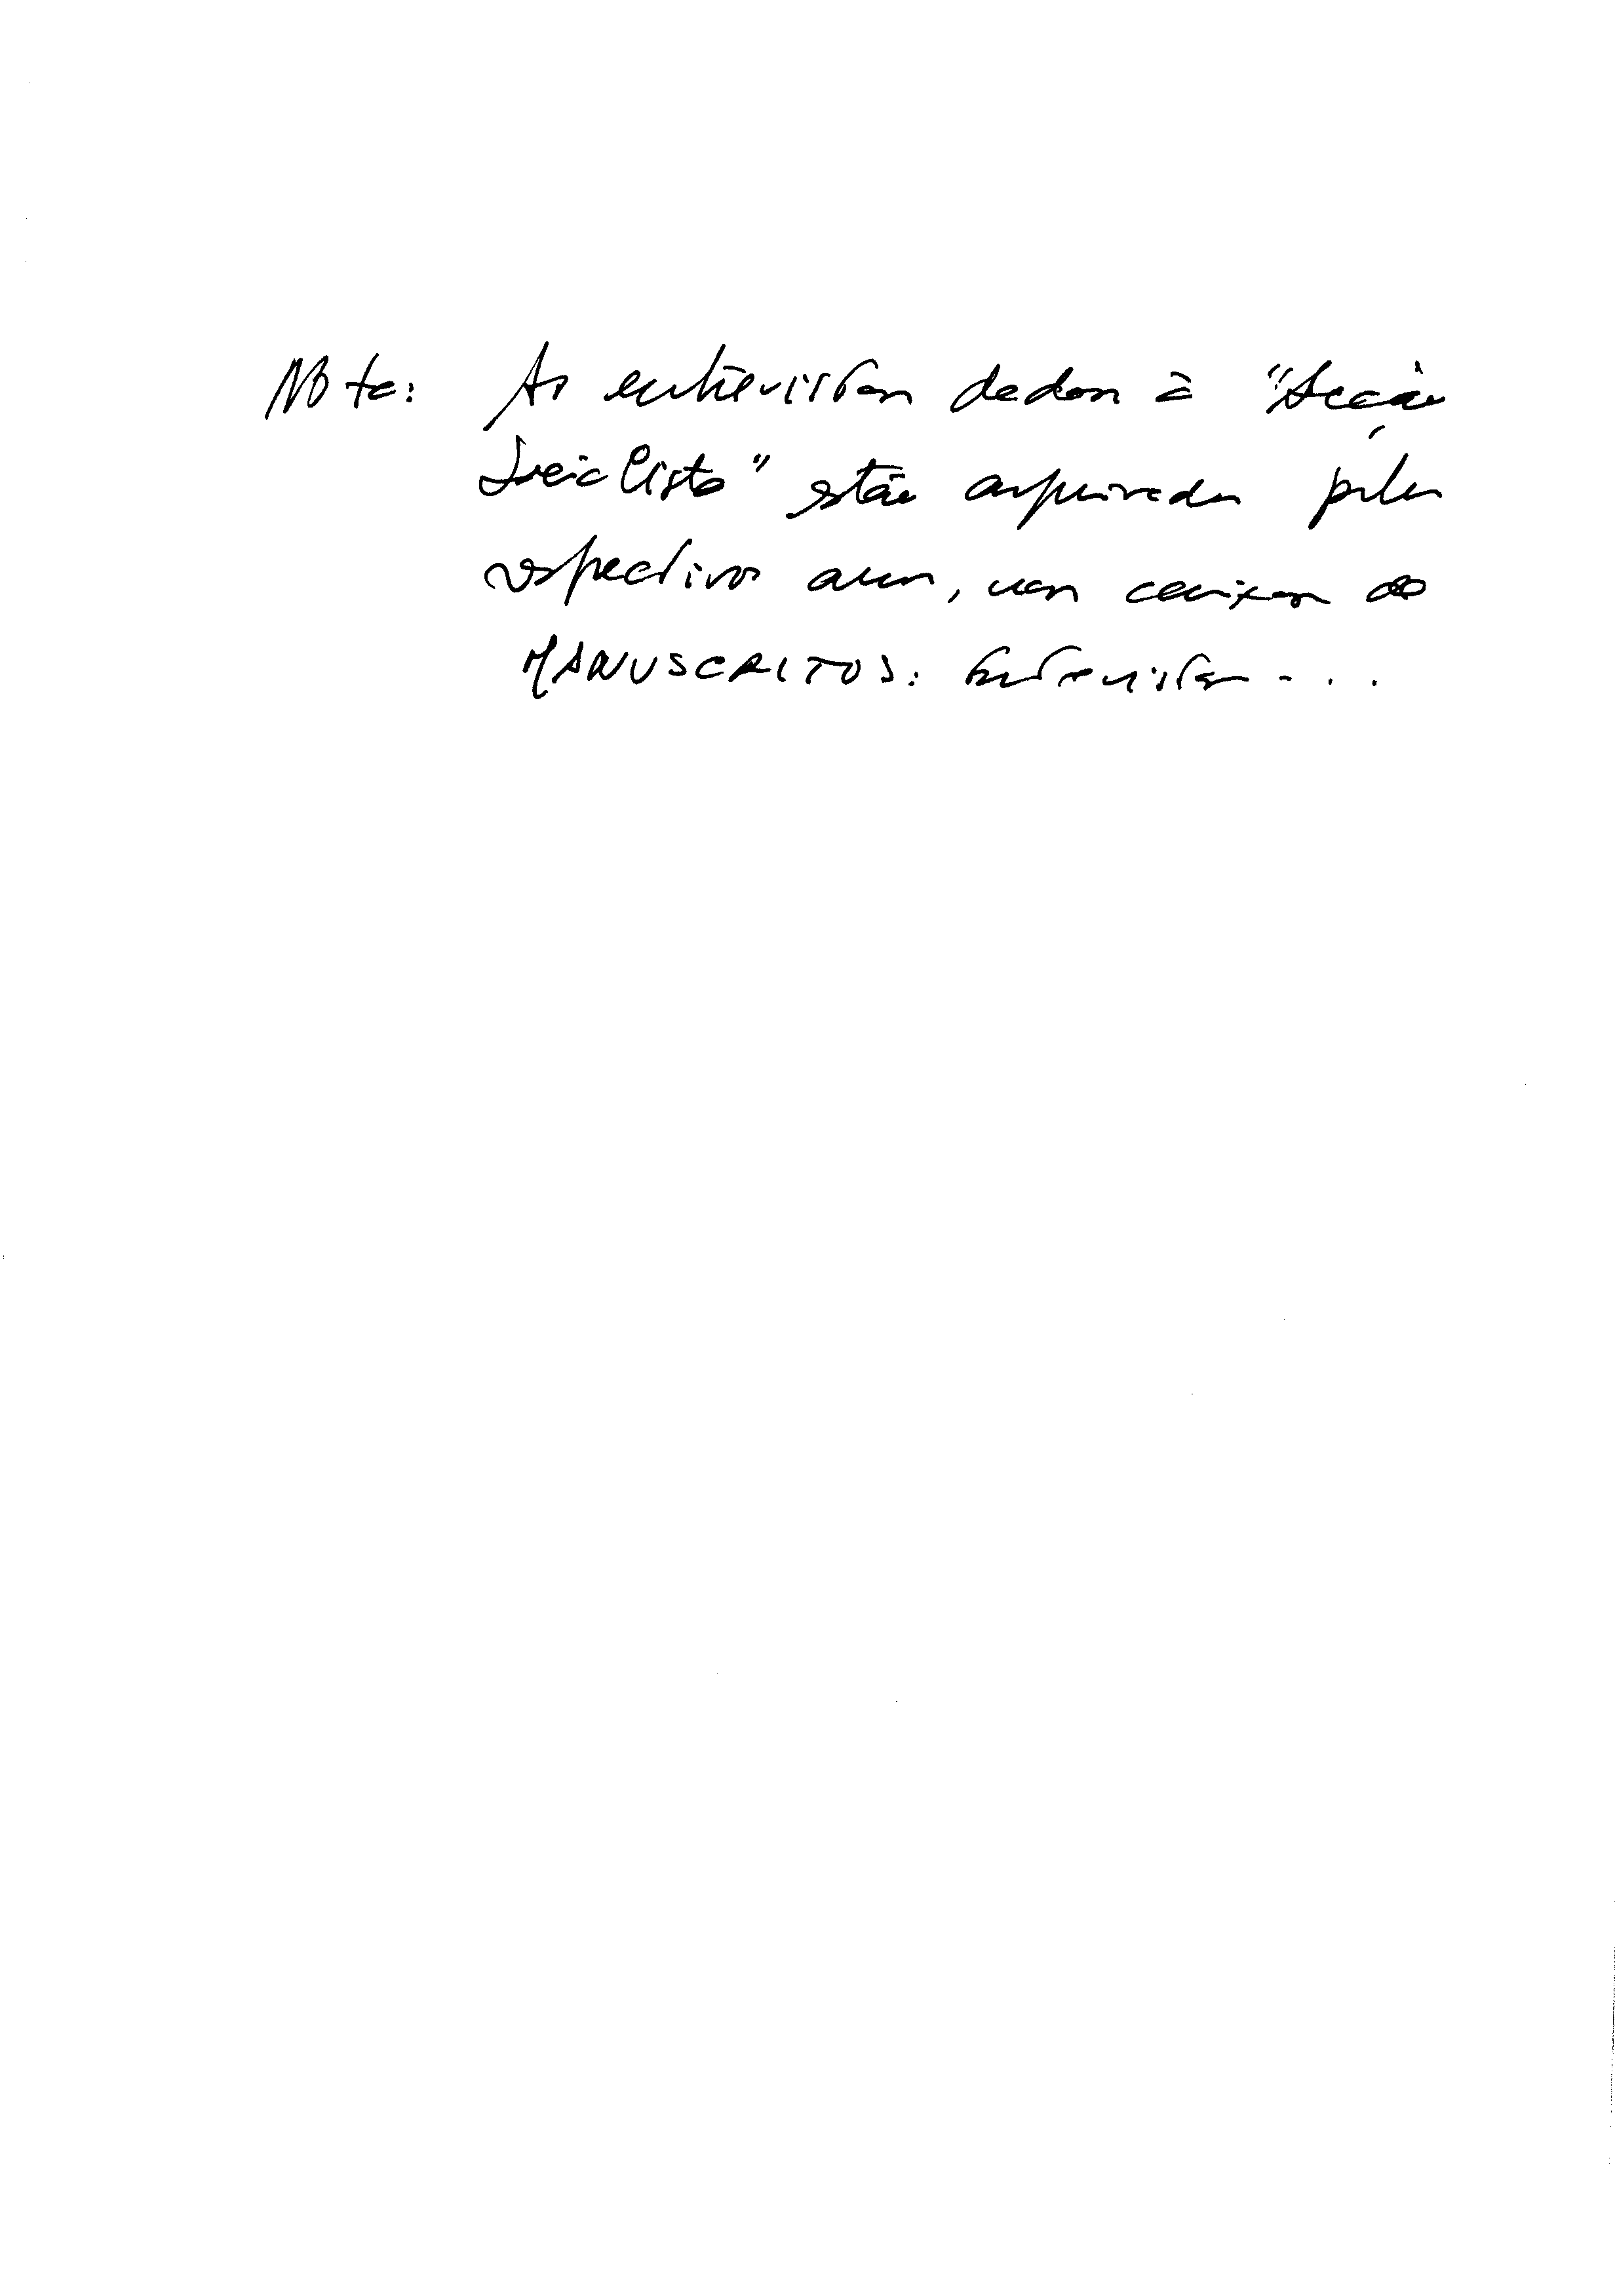 Nota: As entrevistas dadas à "Acção
Socialista" estão arquivadas pelos
respectivos anos, nas caixas dos
MANUSCRITOS: Entrevistas - . . .